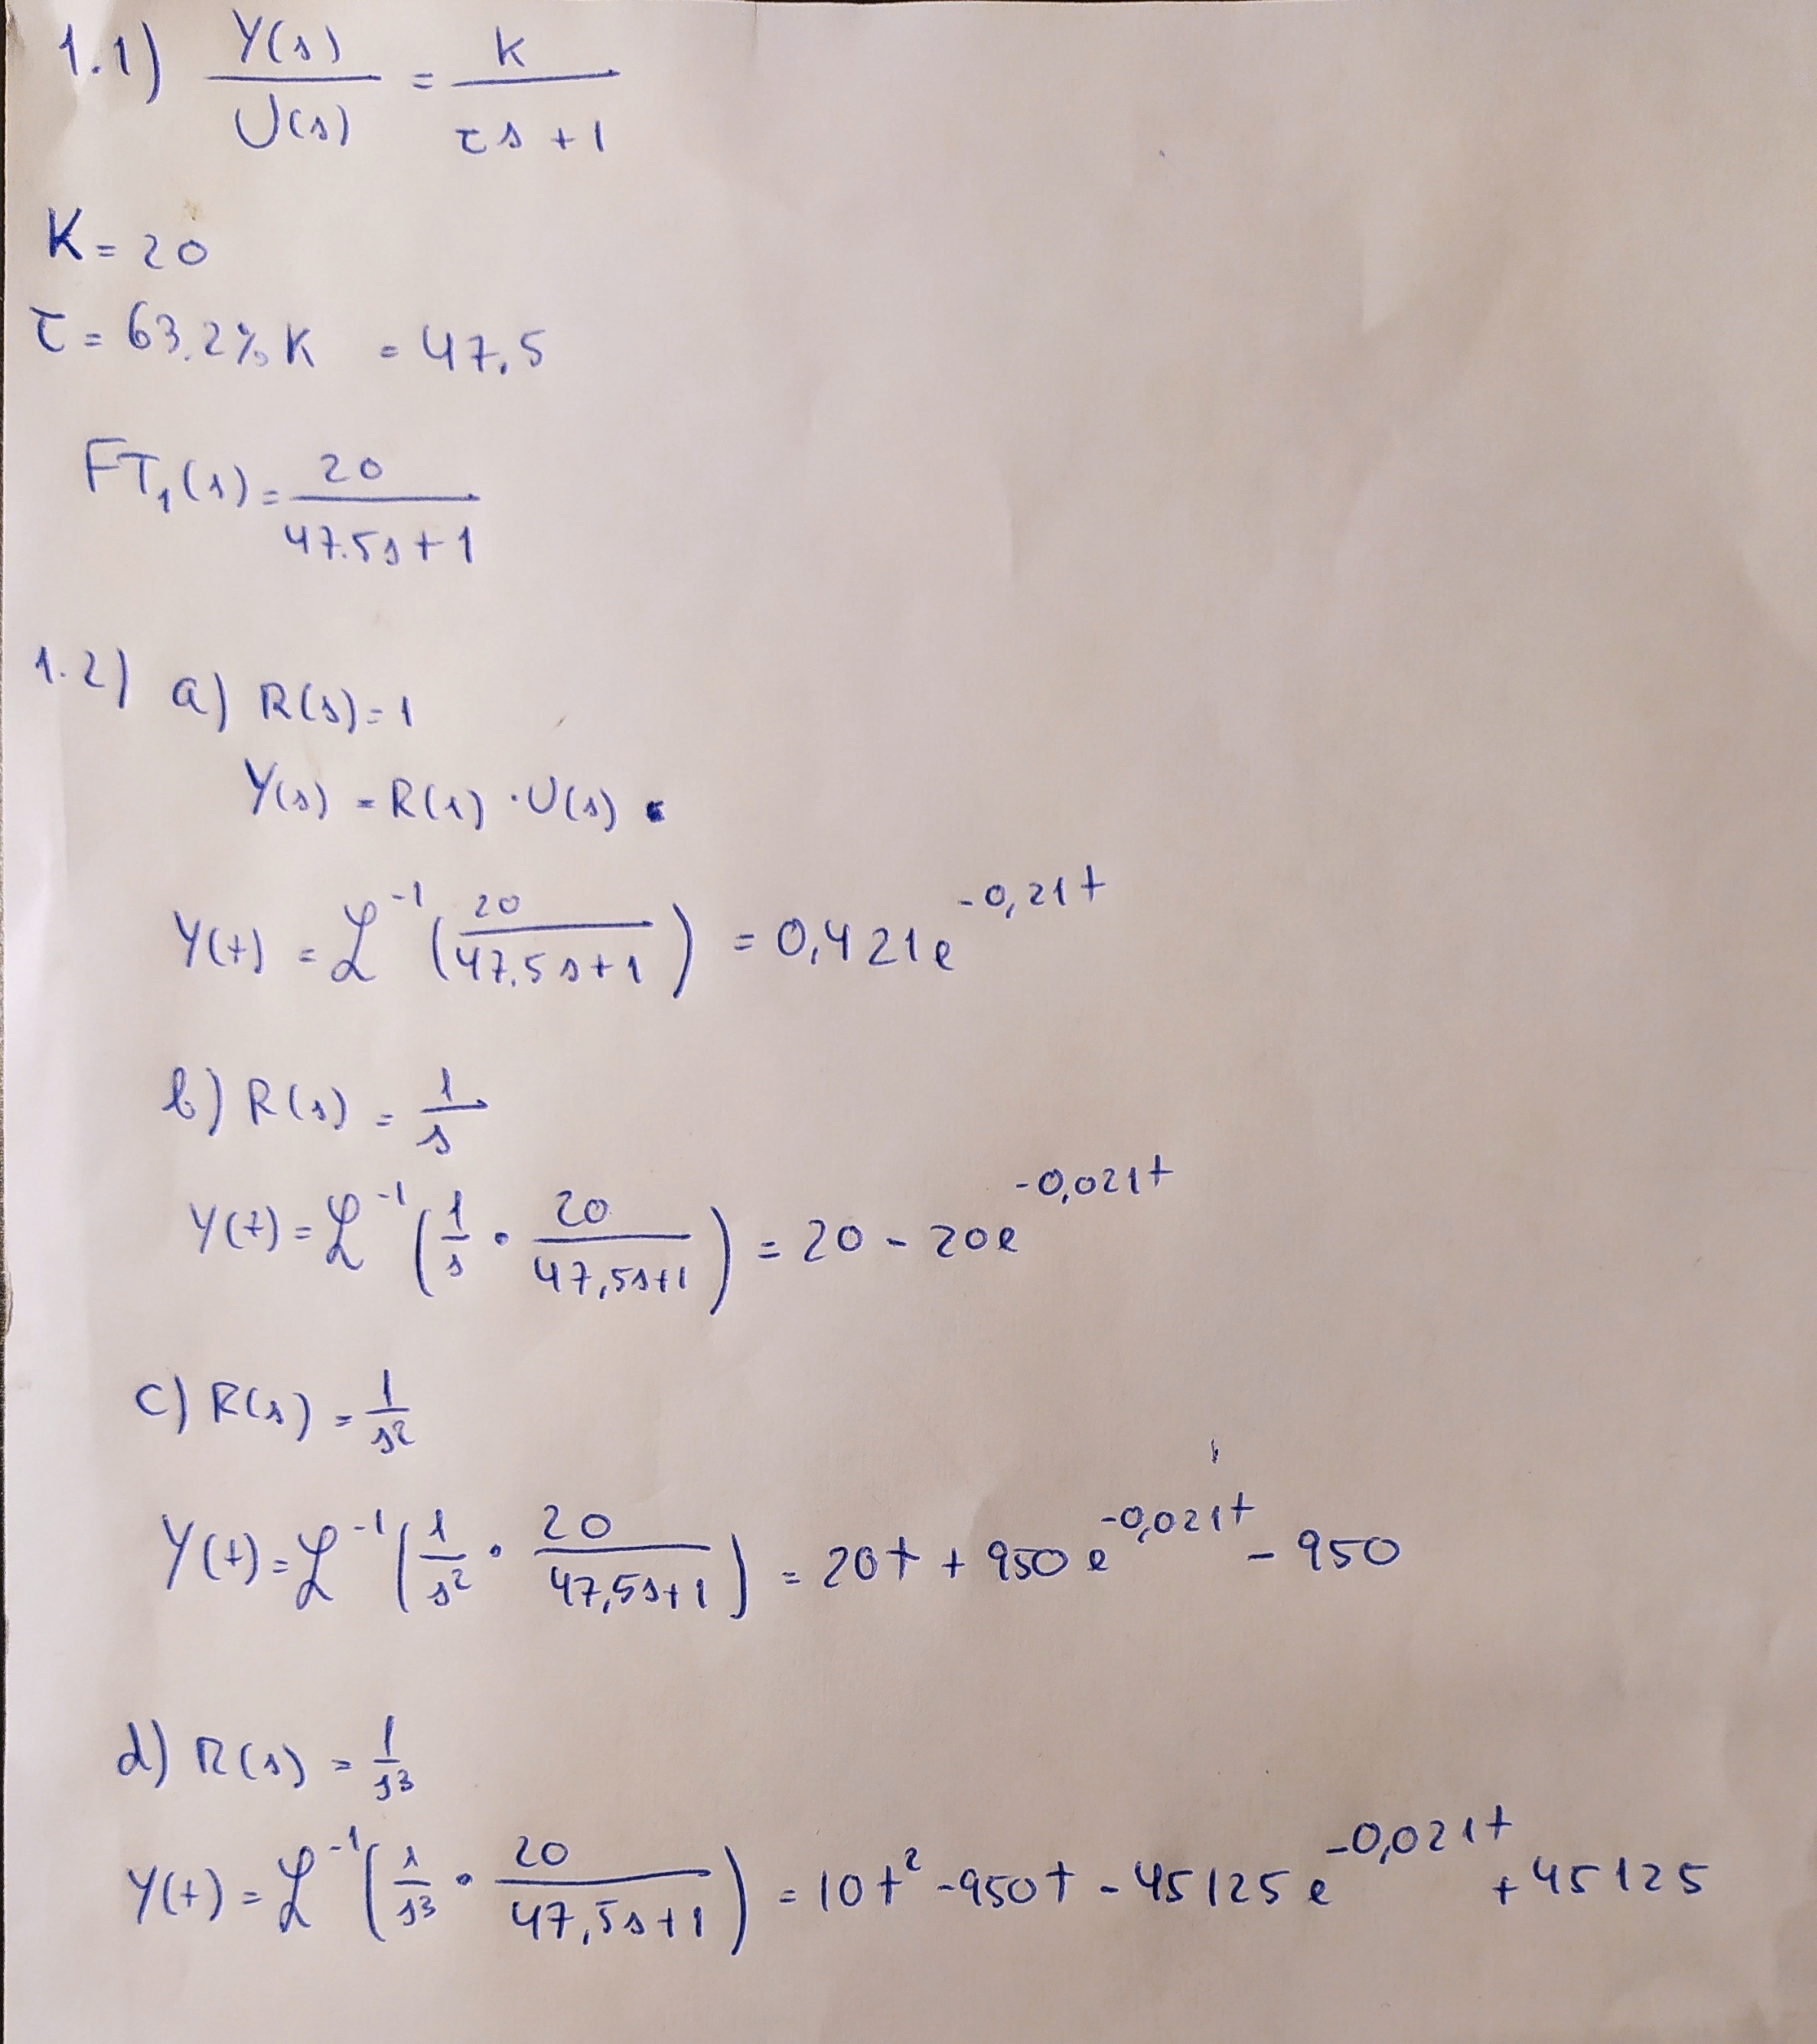 1.1) Y(s)/U(s) = K/(τs + 1)
K = 20
τ = 63.2% K = 47.5
FT₁(s) = 20/(47.5s + 1)
1.2) a) R(s) = 1
Y(s) = R(s) · U(s)
Y(t) = ℒ⁻¹(20/(47,5s + 1)) = 0,421e^(-0,21t)
b) R(s) = 1/s
Y(t) = ℒ⁻¹(1/s · 20/(47,5s+1)) = 20 - 20e^(-0,021t)
c) R(s) = 1/s²
Y(t) = ℒ⁻¹(1/s² · 20/(47,5s+1)) = 20t + 950e^(-0,021t) - 950
d) R(s) = 1/s³
Y(t) = ℒ⁻¹(1/s³ · 20/(47,5s+1)) = 10t² - 950t - 45125e^(-0,021t) + 45125